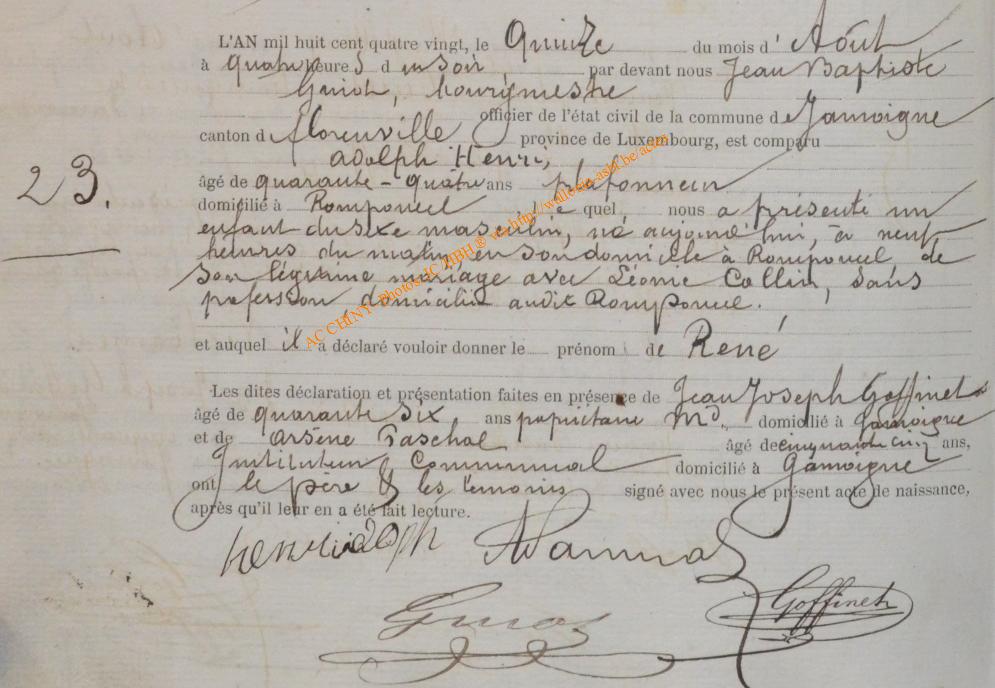 L'AN mil huit cent quatre vingt, le Quinze du mois d'Août
à quatre heures d u soir par devant nous Jean Baptiste
Guiot, bourgmestre
officier de l'état civil de la commune de Jamoigne
canton d florenville province de Luxembourg, est comparu
adolph Henri,
23.
âgé de quarante-quatre ans plafonneur
domicilié à Romponcel le quel, nous a présenté un
enfant du sexe masculin, né aujourd'hui, à neuf
heures du matin, en son domicile à Romponcel de
son légitime mariage avec Léonie Collin, sans
profession, domiciliée audit Romponcel.
AC CHINY - Photos IC TIBH ® via http://wallonia-asbl.be/actes
et auquel il a déclaré vouloir donner le prénom de René
Les dites déclaration et présentation faites en présence de Jean Joseph Goffinet
âgé de quarante six ans propriétaire Md. domicilié à Jamoigne
et de arsène Paschal âgé de cinquante cinq ans,
Instituteur Communal domicilié à Jamoigne
ont le père & les temoins signé avec nous le présent acte de naissance,
après qu'il leur en a été fait lecture.
henri adolph
Guiot
Goffinet